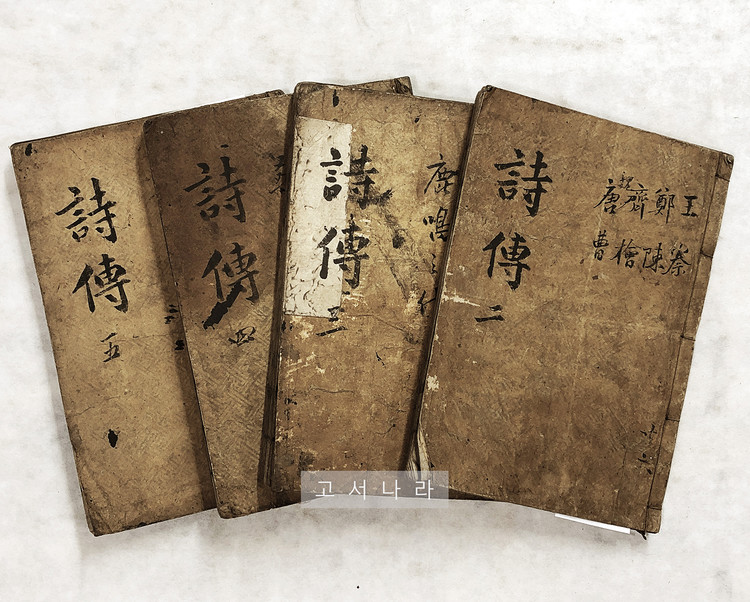 詩傳 五
詩傳 四
詩傳 三
鹿鳴之什
詩傳 二
王鄭齊魏唐
秦陳檜曹
고서나라